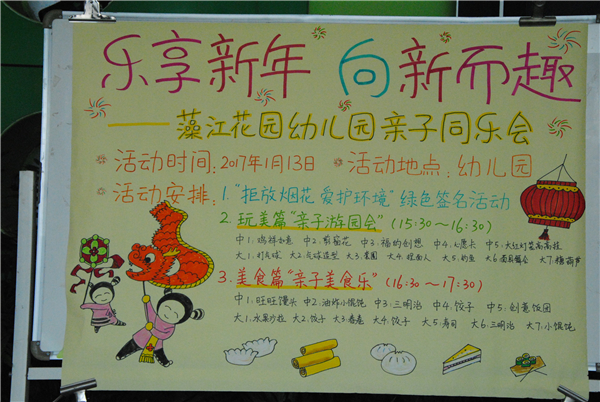 乐享新年 向新而趣
——藻江花园幼儿园亲子同乐会
活动时间:2017年1月13日 活动地点:幼儿园
活动安排:1."拒放烟花 爱护环境"绿色签名活动
2.玩美篇"亲子游园会"(15:30～16:30)
中1.鸡祥如意 中2.剪窗花 中3.福的创想 中4.心愿卡 中5.大红灯笼高高挂
大1.打气球 大2.气球造型 大3.套圈 大4.捏面人 大5.钓鱼 大6.面具舞会 大7.糖葫芦
3.美食篇"亲子美食乐"(16:30～17:30)
中1.旺旺馒头 中2.油炸小馄饨 中3.三明治 中4.饺子 中5.创意饭团
大1.水果沙拉 大2.饺子 大3.春卷 大4.饺子 大5.寿司 大6.三明治 大7.小馄饨